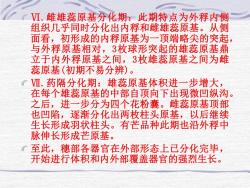 Ⅵ. 雌雄蕊原基分化期：此期特点为外稃内侧
组织几乎同时分化出内稃和雌雄蕊原基。从侧
面看，初形成的内稃原基为一顶端略尖的突起，
与外稃原基相对，3枚球形突起的雄蕊原基鼎
立于内外稃原基之间，3枚雄蕊原基之间为雌
蕊原基(初期不易分辨)。
Ⅶ. 药隔分化期：雄蕊原基体积进一步增大，
在每个雄蕊原基的中部自顶向下出现微凹纵沟。
之后，进一步分为四个花粉囊。雌蕊原基顶部
也凹陷，逐渐分化出两枚柱头原基，以后继续
生长形成羽状柱头。有芒品种此期也沿外稃中
脉伸长形成芒原基。
至此，穗部各器官在外部形态上已分化完毕，
开始进行体积和内外部覆盖器官的强烈生长。